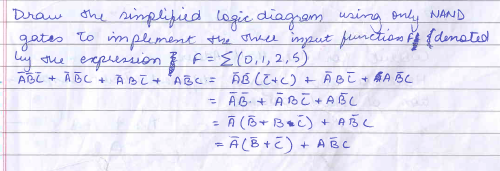 Draw the simplified logic diagram using only NAND
gates to implement the three input function F (denoted
by the expression F = ∑(0,1,2,5)
A̅B̅C̅ + A̅B̅C + A̅BC̅ + AB̅C = A̅B̅(C̅+C) + A̅BC̅ + AB̅C
= A̅B̅ + A̅BC̅ + AB̅C
= A̅(B̅+B·C̅) + AB̅C
= A̅(B̅+C̅) + AB̅C